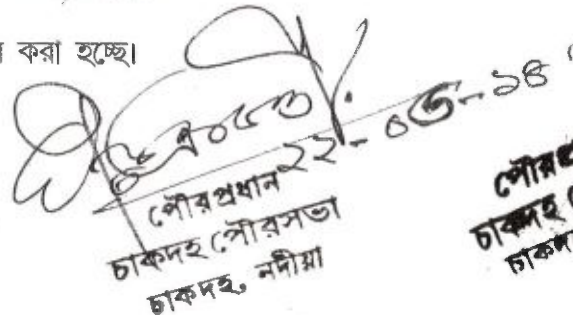 করা হচ্ছে।
২২-০৬-১৪
পৌরপ্রধান
চাকদহ পৌরসভা
চাকদহ, নদীয়া
চাকদহ